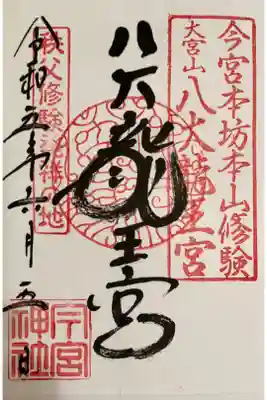 今宮本坊本山修験
大宮山 八大龍王宮
八大龍王宮
秩父修験発祥の地
令和五年六月五日
今宮神社